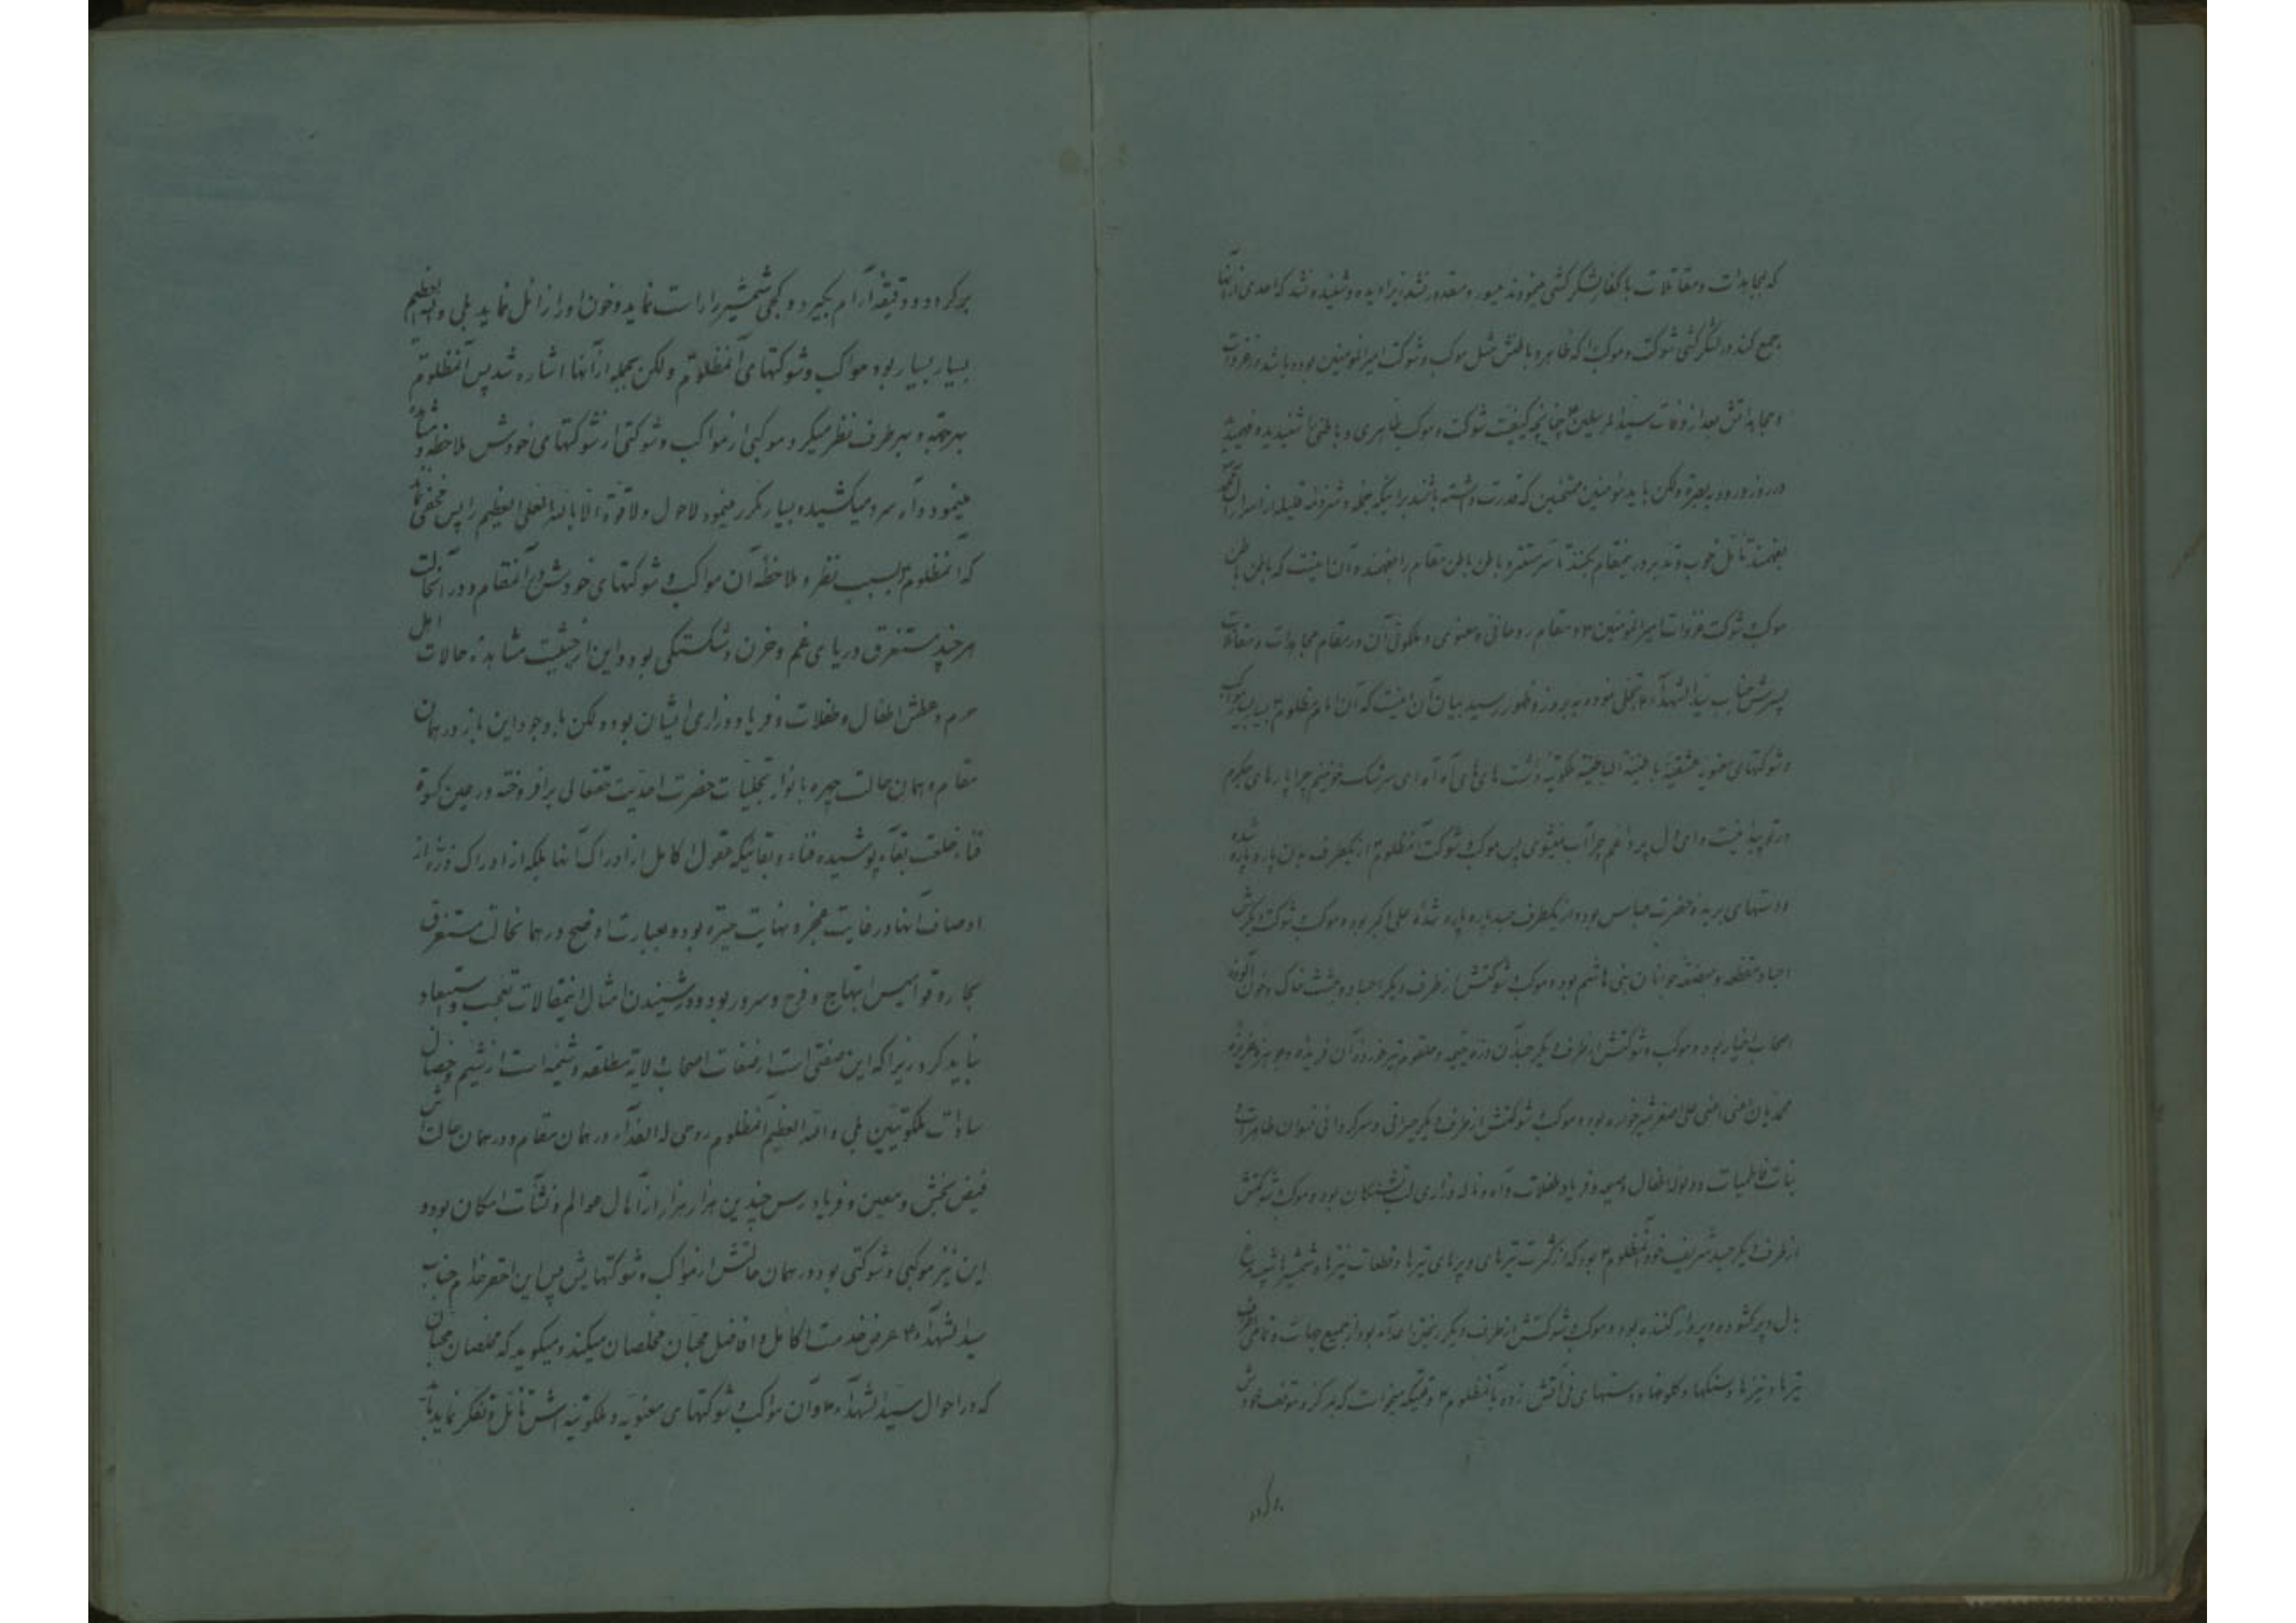 که مجاهدات و مقاتلات با کفار لشکر کشی مینمودند میسور و مقدور نشد زیرا دیده و شنیده نشد که احدی از آنها
جمع کند در لشکر کشی شوکت و موکب را که ظاهر و باطنش مثل موکب و شوکت امیرالمؤمنین بوده باشد در غزوات
و مجاهداتش بعد از وفات سید المرسلین ۳ چنانچه کیفیت شوکت و موکب ظاهری و باطنی را شنیدید و فهمیدید
در روز ورود ببصره ولکن باید مؤمنین ممتحنین که قدرت داشته باشند بر اینکه جمله و شرذمه قلیله از اسرار آل محمد
بفهمند تأمل خوب و تدبر در اینمقام بکنند تا سر مستتر و باطن باطن مقام را بفهمند و آن اینست که باطن باطن
موکب و شوکت غزوات امیرالمؤمنین ۴ و مقام روحانی و معنوی و ملکوتی آن در مقام مجاهدات و مقاتلات
پسرش جناب سید الشهدآء ۴ تجلی نموده به بروز و ظهور رسید بیان آن اینست که آن امام مظلوم ۴ بسیار بسیار موکب
و شوکتهای معنویه عشقیه باطنیة الباطنیه ملکوتیه داشت های های آه آه ای سرشک خونینم چرا پارهای جگرم
در تو پیدا نیست و ای دل پر داغم چرا آب نمیشوی پس موکب و شوکت آنمظلوم ۴ از یکطرف بدن پاره پاره شده
و دستهای بریده حضرت عباس بود و از یکطرف جسد پاره پاره شدۀ علی اکبر بود و موکب و شوکت دیگرش
اجساد مقطعه و مبضعه جوانان بنی هاشم بود و موکب و شوکتش از طرف دیگر اجساد و جثث خاک و خون آلوده
اصحاب اخیار بود و موکب و شوکتش از طرف دیگر جسد آن درّه یتیمه و حلقوم تیر خورده آن فریده و جوهره عزیزه
محمدیان اعنی علی اصغر شیرخواره بود و موکب و شوکتش از طرف دیگر حیرانی و سرگردانی نسوان طاهرات و
بنات فاطمیات و ولوله اطفال و صیحه و فریاد طفلات و آه و ناله و زاری لب تشنگان بود و موکب و شوکتش
از طرف دیگر جسد شریف خود آنمظلوم ۴ بود که از کثرت تیرهای و پرهای تیرها و قطعات نیزها و شمشیرها شبیه مرغ
بال و پر گشوده و پرواز کننده بود و موکب و شوکتش از طرف دیگر ریختن اعدآء بود از جمیع جهات و تمامی اطراف
تیرها و نیزها و سنگها و کلوخها و دستهای نی آتش زده بآنمظلوم ۴ وقتیکه میخواست که بمرکز و موقف خودش
برگردد
برگردد و دو دقیقه آرام بگیرد و کجی شمشیر را راست نماید و خون او را زائل نماید بلی والله العظیم
بسیار بسیار بود مواکب و شوکتهای آنمظلوم ۴ ولکن بجمله از آنها اشاره شد پس آنمظلوم
بهر جهة و بهر طرف نظر میکرد موکبی از مواکب و شوکتی از شوکتهای خودش ملاحظه و مشاهده
مینمود و آه سرد میکشید و بسیار مکرر مینمود لاحول ولا قوة الا بالله العلی العظیم را پس مخفی نماند
که آنمظلوم ۴ بسبب نظر و ملاحظه آن مواکب و شوکتهای خودش در آنمقام و در آنحالت
هر چند مستغرق دریای غم و حزن و شکستگی بود و این از حیثیت مشاهدۀ حالات اهل
حرم و عطش اطفال و طفلات و فریاد و زاری ایشان بود ولکن با وجود این باز در همان
مقام و همان حالت چهره بانوار تجلیات حضرت احدیت حقتعالی برافروخته در عین کسوة
فناء خلعت بقآء پوشیده فناء و بقائیکه عقول کامل از ادراک آنها بلکه از ادراک ذرّه از
اوصاف آنها در غایت عجز و نهایت حیرة بود و بعبارت اوضح در همانحالت مستغرق
بحار و قوامیس ابتهاج و فرح و سرور بود و در شنیدن امثال اینمقالات تعجب و استبعاد
نباید کرد زیرا که این صفتی است از صفات اصحاب ولایة مطلقه و شیمه است از شیم و خصال
سادات ملکوتیین بلی والله العظیم آنمظلوم روحی له الفدآء در همان مقام و در همان حالت اش
فیض بخش و معین و فریادرس چندین هزار هزار از اهالی عوالم و نشآت امکان بود و
این نیز موکبی و شوکتی بود در همان حالتش از مواکب و شوکتهایش پس این احقر خدام جناب
سید الشهدآء ۴ عرض خدمت اکامل و افاضل محبان مخلصان میکند و میگوید که مخلصان محبان
که در احوال سید الشهدآء ۴ و آن مواکب و شوکتهای معنویه و ملکوتیه اش تأمل و تفکر نمایند